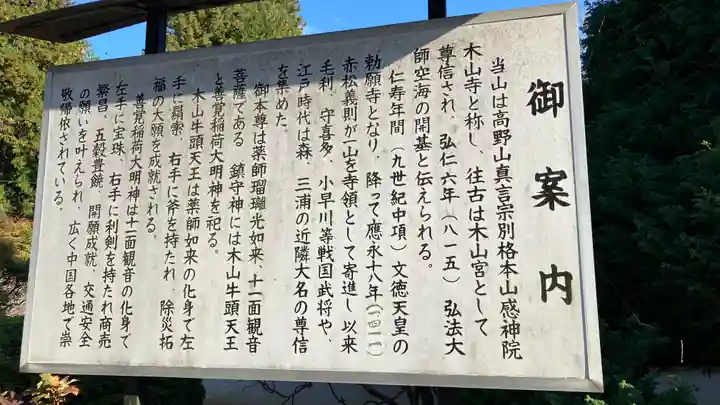 御案内
当山は高野山真言宗別格本山感神院
木山寺と称し、往古は木山宮として
尊信され、弘仁六年（八一五）弘法大
師空海の開基と伝えられる。
仁寿年間（九世紀中項）文徳天皇の
勅願寺となり、降って應永十八年（一四一一）
赤松義則が一山を寺領として寄進し以来
毛利、守喜多、小早川等戦国武将や、
江戸時代は森、三浦の近隣大名の尊信
を集めた。
御本尊は薬師瑠璃光如来、十一面観音
菩薩である 鎮守神には木山牛頭天王
と善覚稲荷大明神を祀る。
木山牛頭天王は薬師如来の化身で左
手に絹索、右手に斧を持たれ 除災招
福の大願を成就される。
善覚稲荷大明神は十一面観音の化身で
左手に宝珠、右手に利剣を持たれ商売
繁昌、五穀豊饒、開願成就、交通安全
の願いを叶えられ、広く中国各地で崇
敬帰依されている。